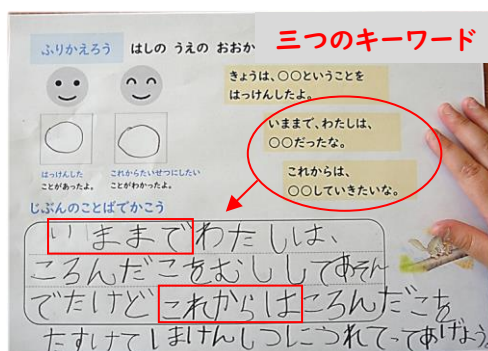 三つのキーワード
ふりかえろう はしの うえの おおか
きょうは、○○ということを
はっけんしたよ。
いままで、わたしは、
○○だったな。
これからは、
○○していきたいな。
はっけんした
ことがあったよ。
これからたいせつにしたい
ことがわかったよ。
じぶんのことばでかこう
いままでわたしは、
ころんだこをむししてあそん
でたけどこれからはころんだこを
たすけてしまけんしつにつれてってあげよう